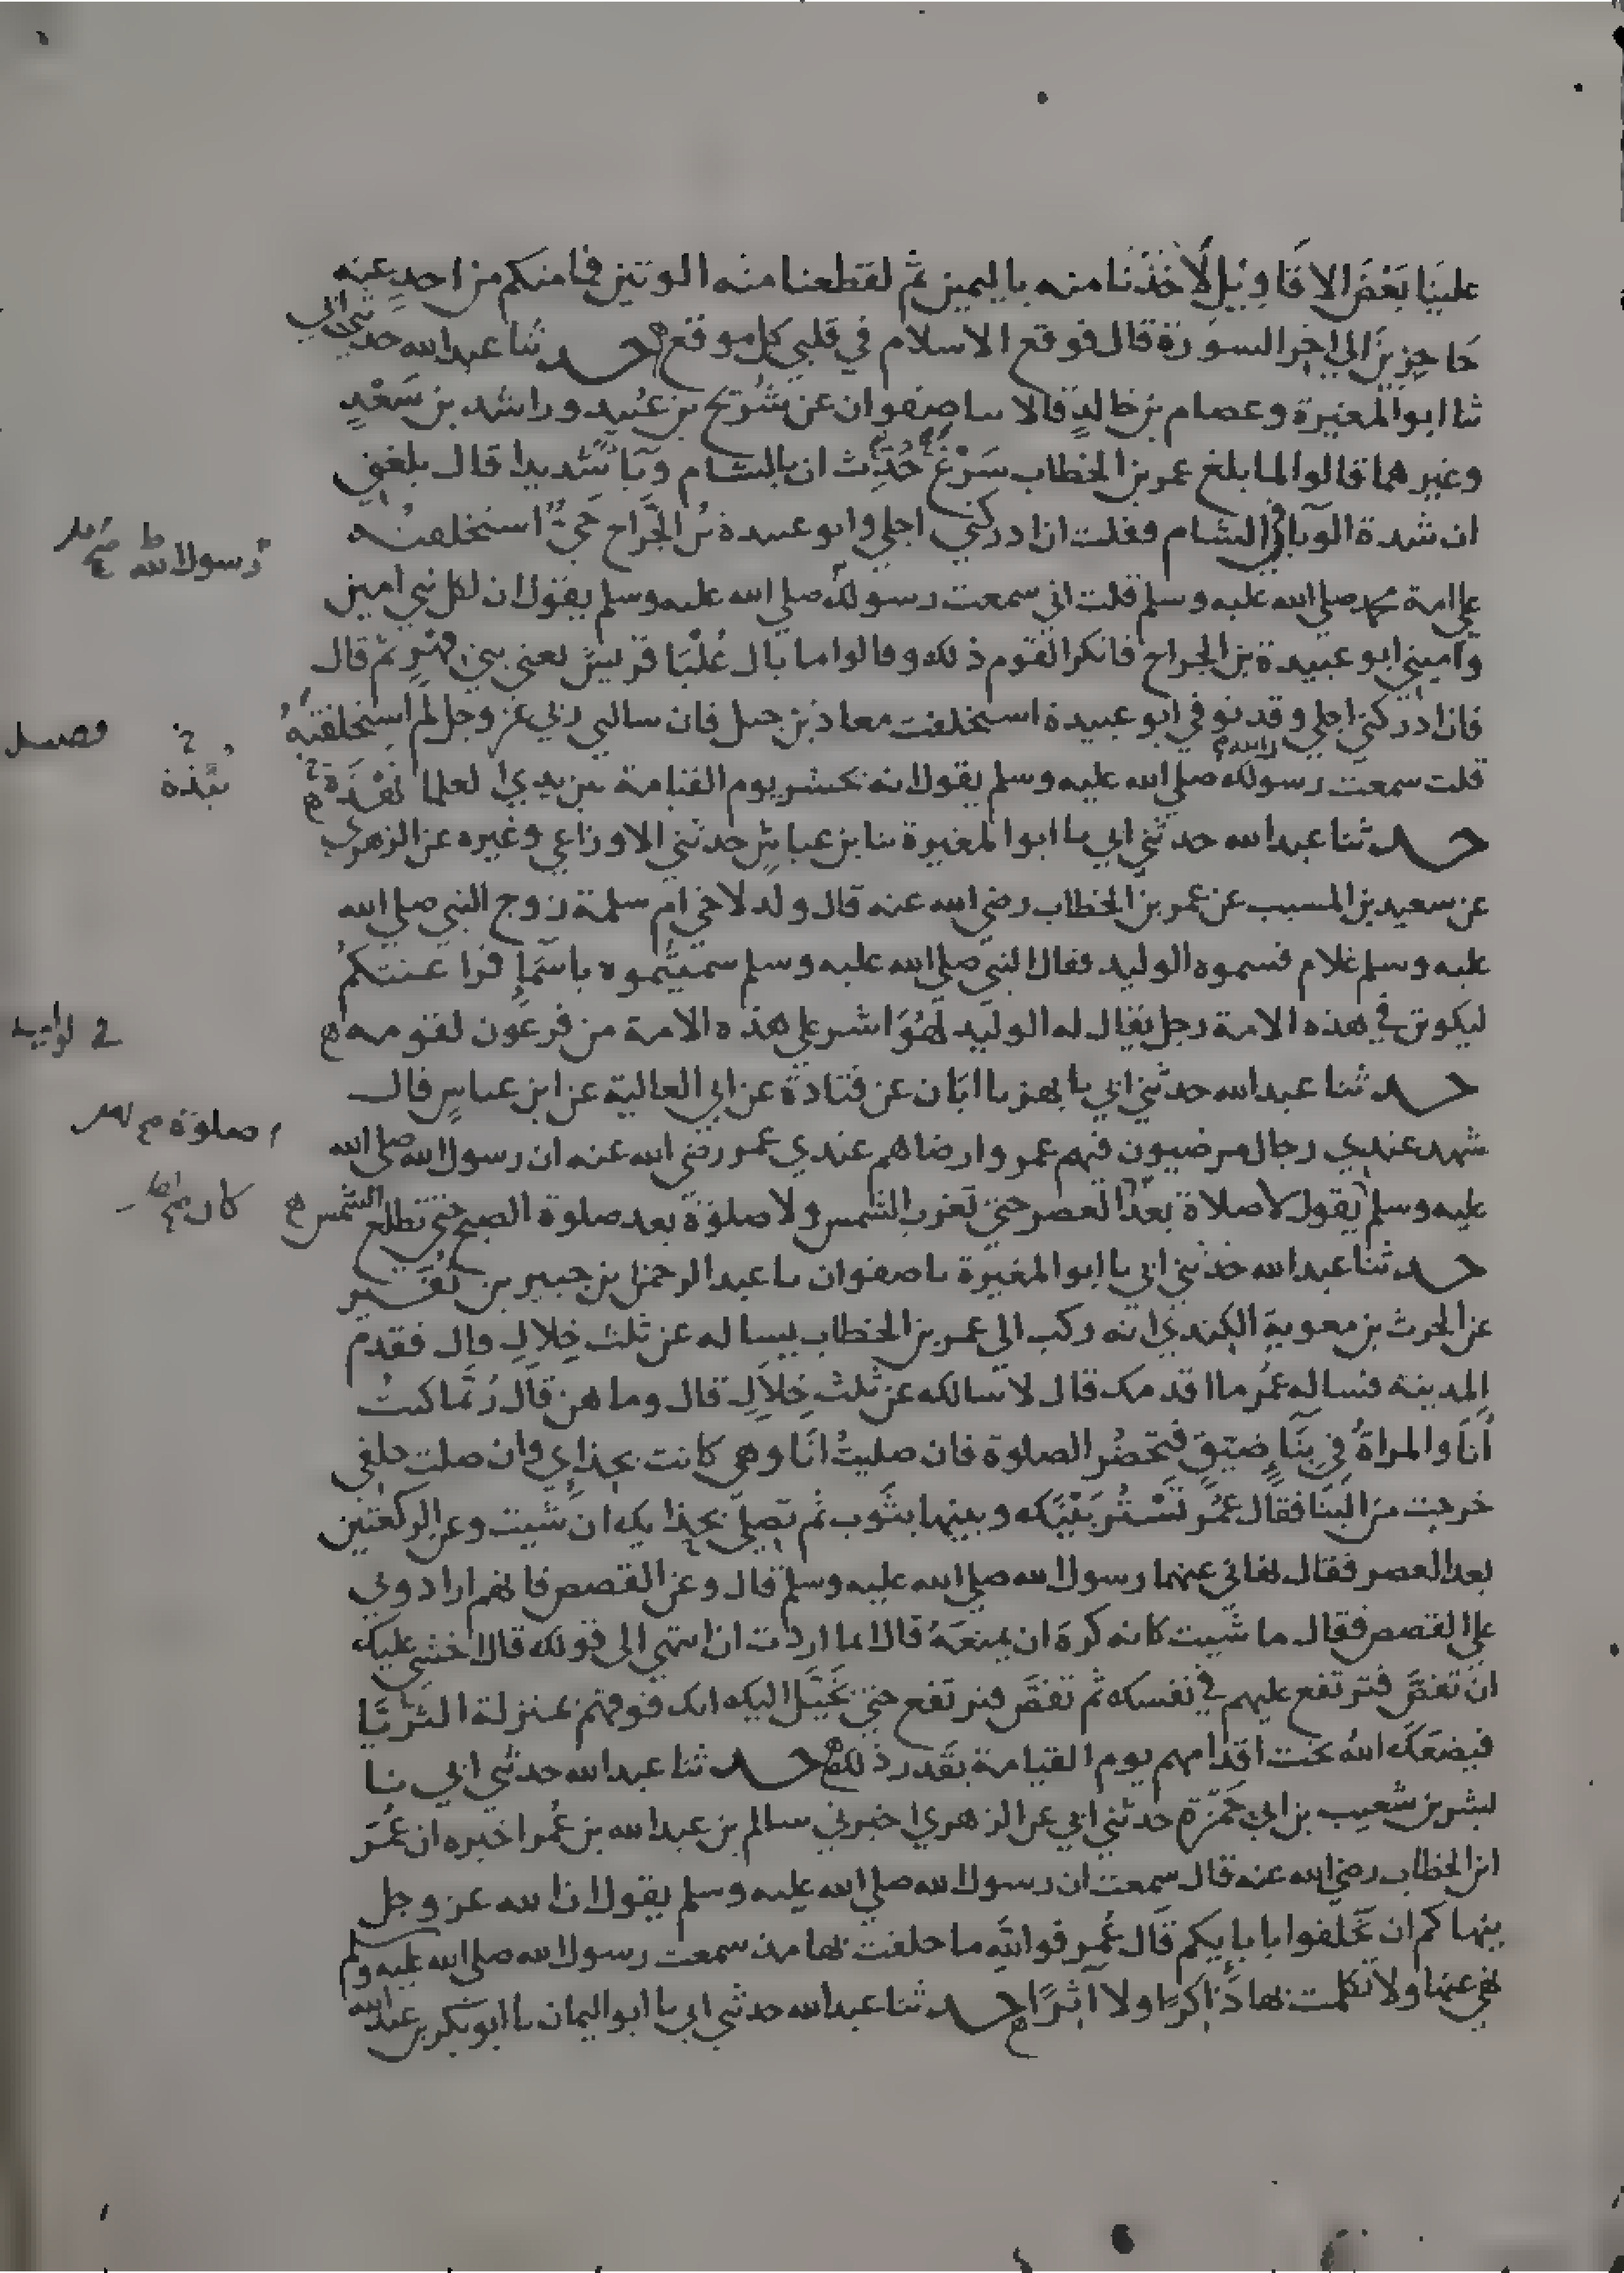 علينا بَعْضَ الاقاويل لَأخذنا منه باليمين ثم لقطعنا منه الوتين فما منكم من احدٍ عنه
حَاجزينَ الي اخر السورة قال فوقع الاسلام في قلبي كل موقع حدثنا عبد الله حدثني ابي
ثنا ابو المغيرة وعصام بن خالدٍ قالا ثنا صفوان عن شُرَيح بن عبيد وراشد بن سَعْدٍ
وغيرهما قالوا لما بلغ عمر بن الخطاب سَرْغَ حُدِّث ان بالشام وبآ شديدا قال بلغني
ان شدة الوبا في الشام فقلت ان ادركني اجلي وابو عبيدة بن الجرّاح حَيٌّ استخلفته
رسول الله
علي امة محمد صلي الله عليه وسلم قلت اني سمعت رسولك صلي الله عليه وسلم يقول ان لكل نبي امين
واميني ابو عبيدة بن الجراح فانكر القوم ذلك وقالوا ما بال عُلْيَا قريش يعني بني فهرٍ ثم قال
فان ادركني اجلي وقد توفي ابو عبيدة استخلفت معاذ بن جبل فان سالني ربي عز وجل لم استخلفته
قلت سمعت رسولك صلي الله عليه وسلم يقول انه يحشر يوم القيامة بين يدي العلما
نبذة
حدثنا عبد الله حدثني ابي نا ابو المغيرة ثنا بن عياش حدثني الاوزاعي وغيره عن الزهري
عن سعيد بن المسيب عن عمر بن الخطاب رضي الله عنه قال ولد لاخي ام سلمة زوج النبي صلي الله
عليه وسلم غلام فسموه الوليد فقال النبي صلي الله عليه وسلم سمّيتُموه باسمآ فراعنتكم
ليكونن في هذه الامة رجل يقال له الوليد لَهُوَ اشر علي هذه الامة من فرعون لقومه
حدثنا عبد الله حدثني ابي نا بهز نا ابَان عن قتادة عن ابي العالية عن ابن عباسٍ قال
صلوة
شهد عندي رجال مرضيون فيهم عمر وارضاهم عندي عمر رضي الله عنه ان رسول الله صلي الله
عليه وسلم يقول لا صلاة بعد العصر حتي تغرب الشمس ولا صلوة بعد صلوة الصبح حتي تطلع الشمس
كان
حدثنا عبد الله حدثني ابي نا ابو المغيرة نا صفوان نا عبد الرحمن بن جبير بن نُفَير
عن الحرث بن معوية الكندي انه ركب الي عمر بن الخطاب يساله عن ثلث خِلالٍ قال فقدم
المدينة فساله عمر ما اقدمك قال لاسالك عن ثلث خِلَالٍ قال وما هن قال رُبّما كنتُ
أنَا والمراةُ في بِنَآءٍ ضيّقٍ فتحضُر الصلوة فان صليتُ انَا وهي كانت بحذاءي وان صلت خلفي
خرجت من البنا فقال عُمَر تَسْتُر بَيْنَك وبينها بثوب ثم تصلي بحذايك ان شيت وعن الركعتين
بعد العصر فقال نهاني عنهما رسول الله صلي الله عليه وسلم قال وعن القصص فانهم ارادوني
علي القصص فقال ما شيت كانه كره ان يمنعَهُ قال انما اردت ان انتهي الي قولك قال اخشي عليك
ان تقصّ فترتفع عليهم في نفسك ثم تقصّ فترتفع حتي يُخَيَّل اليك انك فوقهم بمنزلة الثريّا
فيضعَك الله تحت اقدامهم يوم القيامة بقَدر ذلك حدثنا عبد الله حدثني ابي ثنا
بشر بن شُعيب بن ابي حَمْزة حدثني ابي عن الزهري اخبرني سالم بن عبد الله بن عُمر اخبره ان عُمَر
ابن الخطاب رضي الله عنه قال سمعت ان رسول الله صلي الله عليه وسلم يقول ان الله عز وجل
ينهاكم ان تَحْلفوا بابايكم قَال عُمر فوالله ما حلفت بها منذ سمعت رسول الله صلي الله عليه وسلم
نهي عنها ولا تكلمت بها ذَاكرًا ولا آثرًا حدثنا عبد الله حدثني ابي نا ابو اليمان نا ابو بكر بن عبد الله